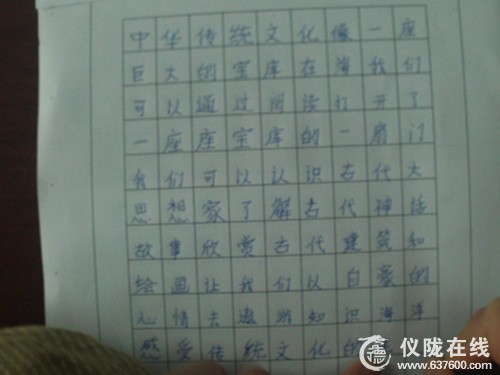 中华传统文化像一座
巨大的宝库在海我们
可以通过阅读打开了
一座座宝库的一扇门
我们可以认识古代大
思想家了解古代神话
故事欣赏古代建筑和
绘画让我们以自豪的
心情去遨游知识海洋
感受传统文化的
仪陇在线
www.637600.com